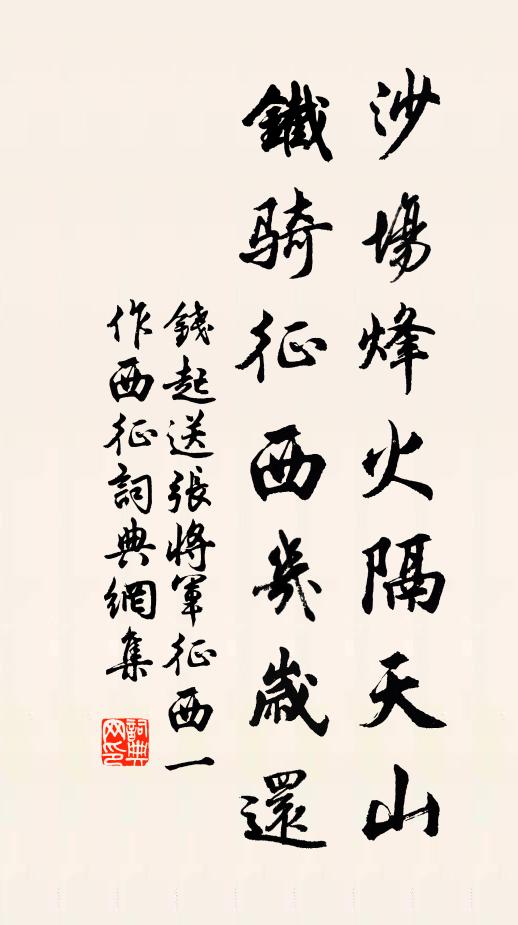 沙場烽火隔天山
鐵騎征西幾歲還
錢起送張將軍征西一
作西征詞典網集
詞典
网印